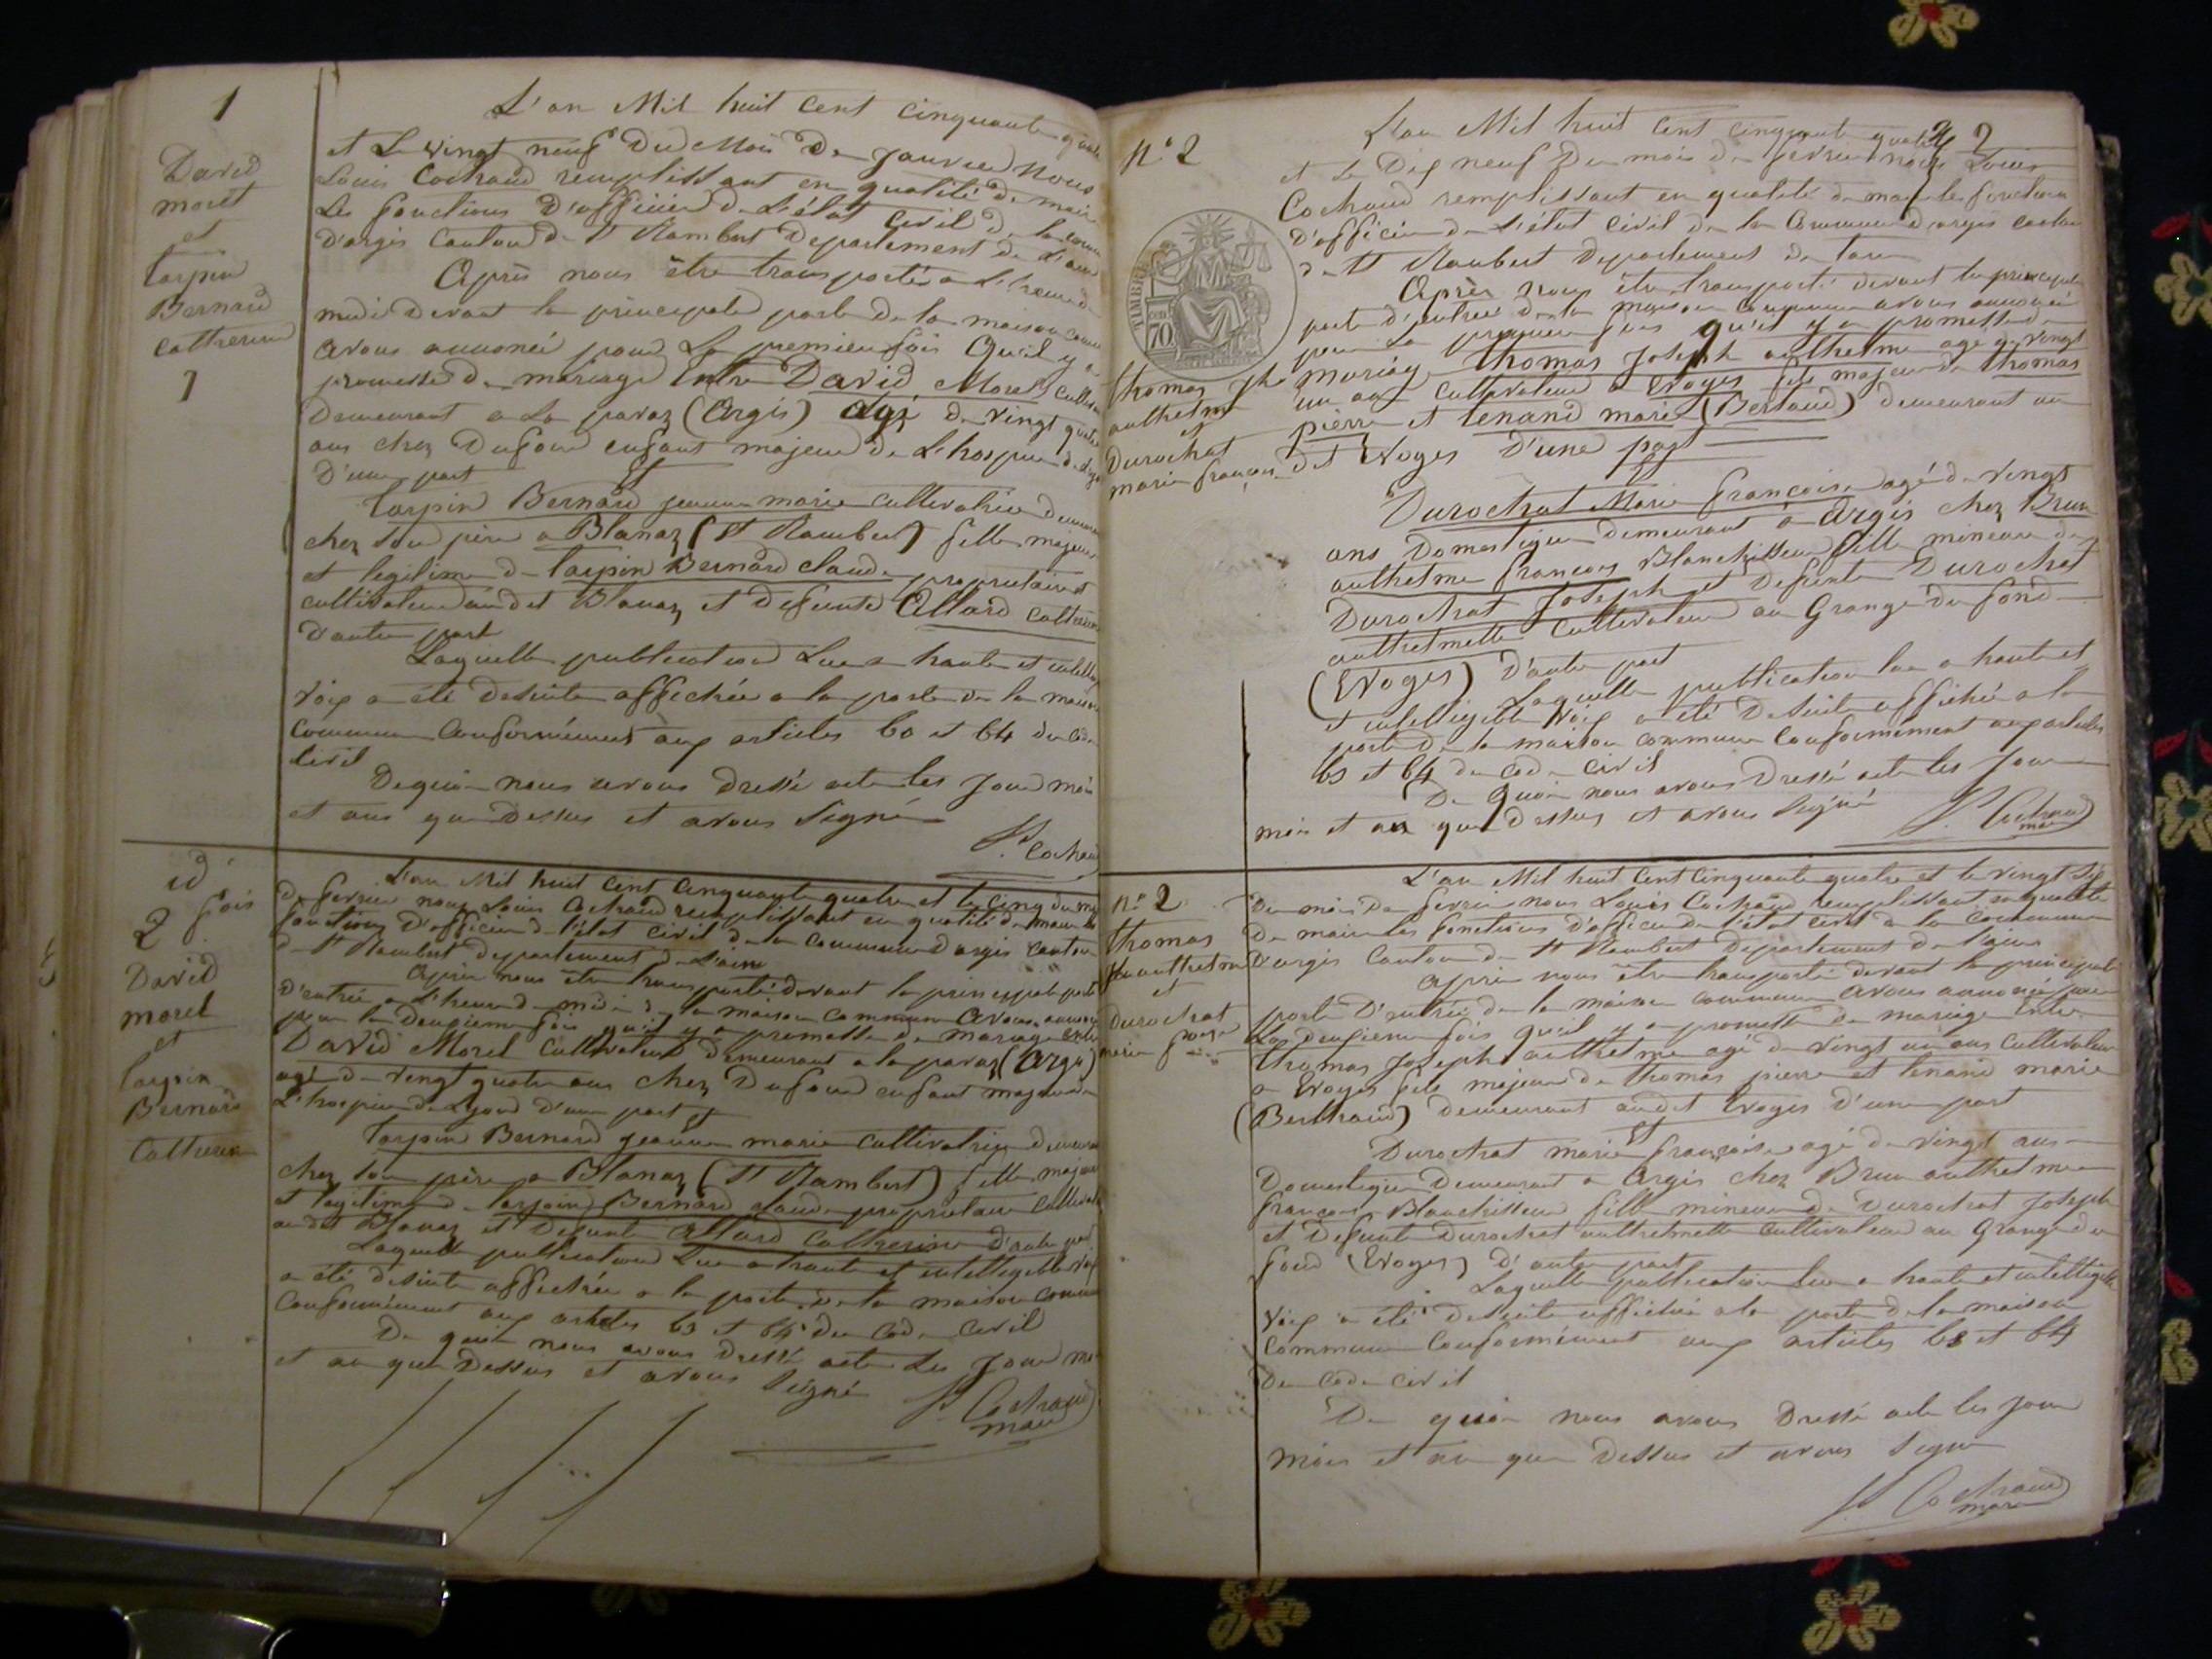 1
David
morel
et
tarpin
Bernard
Catherine
1
L'an Mil huit Cent cinquante
et Le vingt neuf Du Mois De Janvier Nous
Louis Cochaud remplissant en qualité De maire
Les fonctions D'officier De L'état Civil De la
D'argis Canton De St Rambert Departement De L'ain
Après nous être transporté a L'heure de
midi Devant la principale porte De la maison
avons annoncé pour La premier fois Qu'il y a
promesse De mariage Entre David Morel
Demeurant a La paraz (Argis) agé De vingt quatre
ans chez Dufour enfant majeur De L'hospice
D'une part Et
tarpin Bernard jeanne marie cultivatrice
chez son père a Blanaz (St Rambert) fille majeure
et legitime De tarpin Bernard claude proprietaire
cultivateur audit Blanaz et Defunte Allard Catherine
D'autre part
Laquelle publication Lue a haute et
voix a été Desuite affichée a la porte De la maison
Commune Conformément aux articles 63 et 64 du Code
Civil
Dequoi nous avons Dressé acte les Jour mois
et ans que Dessus et avons Signé
Cochaud
id
2 fois
David
morel
et
tarpin
Bernard
Catherine
L'an Mil huit Cent Cinquante quatre et le cinq du mois
De fevrier nous Louis Cochaud remplissant en qualité De maire les
fonctions D'officier De l'état Civil De la Commune D'argis Canton
De St Rambert Departement De L'ain
Après nous être transporté devant la principale porte
D'entrée a L'heure De midi De la maison Commune Avons annoncé
pour la Deuxieme fois qu'il y a promesse De Mariage Entre
David Morel Cultivateur Demeurant a la paraz (Argis)
agé De vingt quatre ans chez Dufour enfant majeur De
L'hospice De Lyon D'une part et
tarpin Bernard jeanne marie cultivatrice
chez son père a Blanaz (St Rambert) fille majeure
et legitime De tarpin Bernard claude proprietaire
audit Blanaz et Defunte Allard Catherine D'autre part
Laquelle publication Lue a haute et intelligible voix
a été Desuite affichée a la porte De la maison Commune
Conformément aux articles 63 et 64 Du Code Civil
De quoi nous avons Dressé acte Les Jour mois
et an que Dessus et avons Signé
Cochaud
maire
n° 2
2
L'an Mil huit Cent cinquante quatre
et Le Dix neuf Du mois De fevrier nous Louis
Cochaud remplissant en qualité De maire les fonctions
D'officier De L'état Civil De la Commune D'argis Canton
De St Rambert Departement De l'ain
Après nous être transporté devant la principale
porte d'entrée De la maison Commune avons annoncé
pour La premiere fois qu'il y a promesse De
TIMBRE
70
thomas Jh
anthelme
et
Durochat
marie françoise
Mariage thomas Joseph anthelme agé De vingt
un ans cultivateur a Evoges fils majeur De thomas
pierre et tenand marie (Bertrand) demeurant au
dit Evoges D'une part
Et
Durochat Marie françoise agé De vingt
ans Domestique demeurant a Argis chez Brun
anthelme françois Blanchisseur fille mineure De
Durochat Joseph et Defunte Durochat
anthelmette Cultivateur au Grange Du fond
(Evoges) D'autre part
Laquelle publication lue a haute et
et intelligible voix a été Desuite affichée a la
porte De la maison commune Conformément aux articles
63 et 64 Du Code Civil
De Quoi nous avons Dressé acte les Jour
mois et an que Dessus et avons Signé
Cochaud
maire
n° 2
thomas
Jh anthelme
et
Durochat
marie françoise
L'an Mil huit Cent Cinquante quatre et le vingt Six
Du mois De fevrier nous Louis Cochaud remplissant en qualité
De maire les fonctions D'officier De l'état Civil De la Commune
D'argis Canton De St Rambert Departement De l'ain
Après nous être transporté devant la principale
porte D'entrée De la maison Commune avons annoncé pour
La deuxieme fois qu'il y a promesse De mariage Entre
thomas Joseph anthelme agé De vingt un ans cultivateur
a Evoges fils majeur De thomas pierre et tenand marie
(Bertrand) Demeurant audit Evoges D'une part
Et
Durochat marie françoise agé De vingt ans
Domestique Demeurant a Argis chez Brun anthelme
françois Blanchisseur fille mineure De Durochat Joseph
et Defunte Durochat anthelmette Cultivateur au Grange Du
fond (Evoges) D'autre part
Laquelle publication lue a haute et intelligible
voix a été Desuite affichée a la porte De la maison
Commune Conformément aux articles 63 et 64
Du Code Civil
De quoi nous avons Dressé acte les Jour
mois et an que Dessus et avons Signé
Cochaud
maire